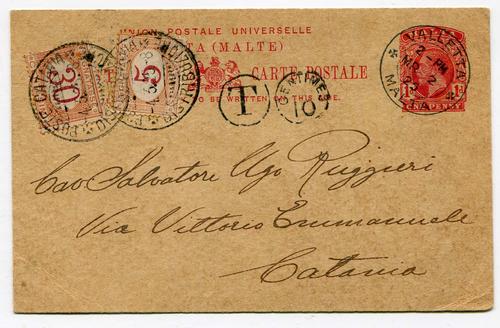 UNION POSTALE UNIVERSELLE
TA (MALTE)
CARTE POSTALE
TO BE WRITTEN ON THIS SIDE.
20
5
T
CENTIMES
10
VALLETTA
2-PM
MALTA
1d 1d
ONE PENNY
Cav Salvatore Ugo Ruggieri
Via Vittorio Emmanuele
Catania